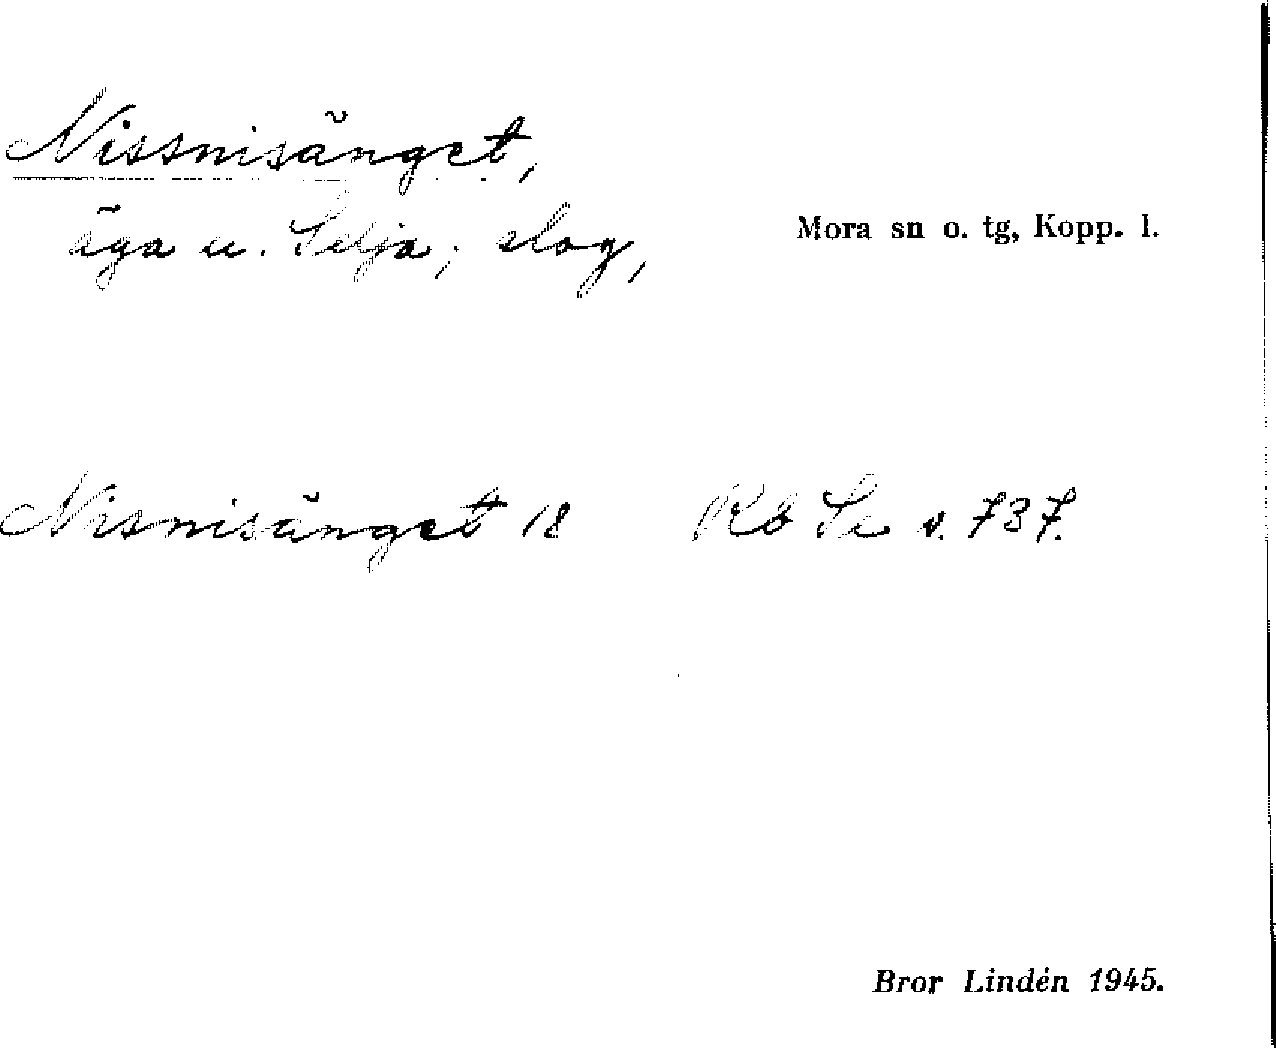 Nissnisänget,
äga u. Selja; slog,
Mora sn o. tg, Kopp. l.
Nisnisänget 18 Rb Se s. 737.
Bror Lindén 1945.